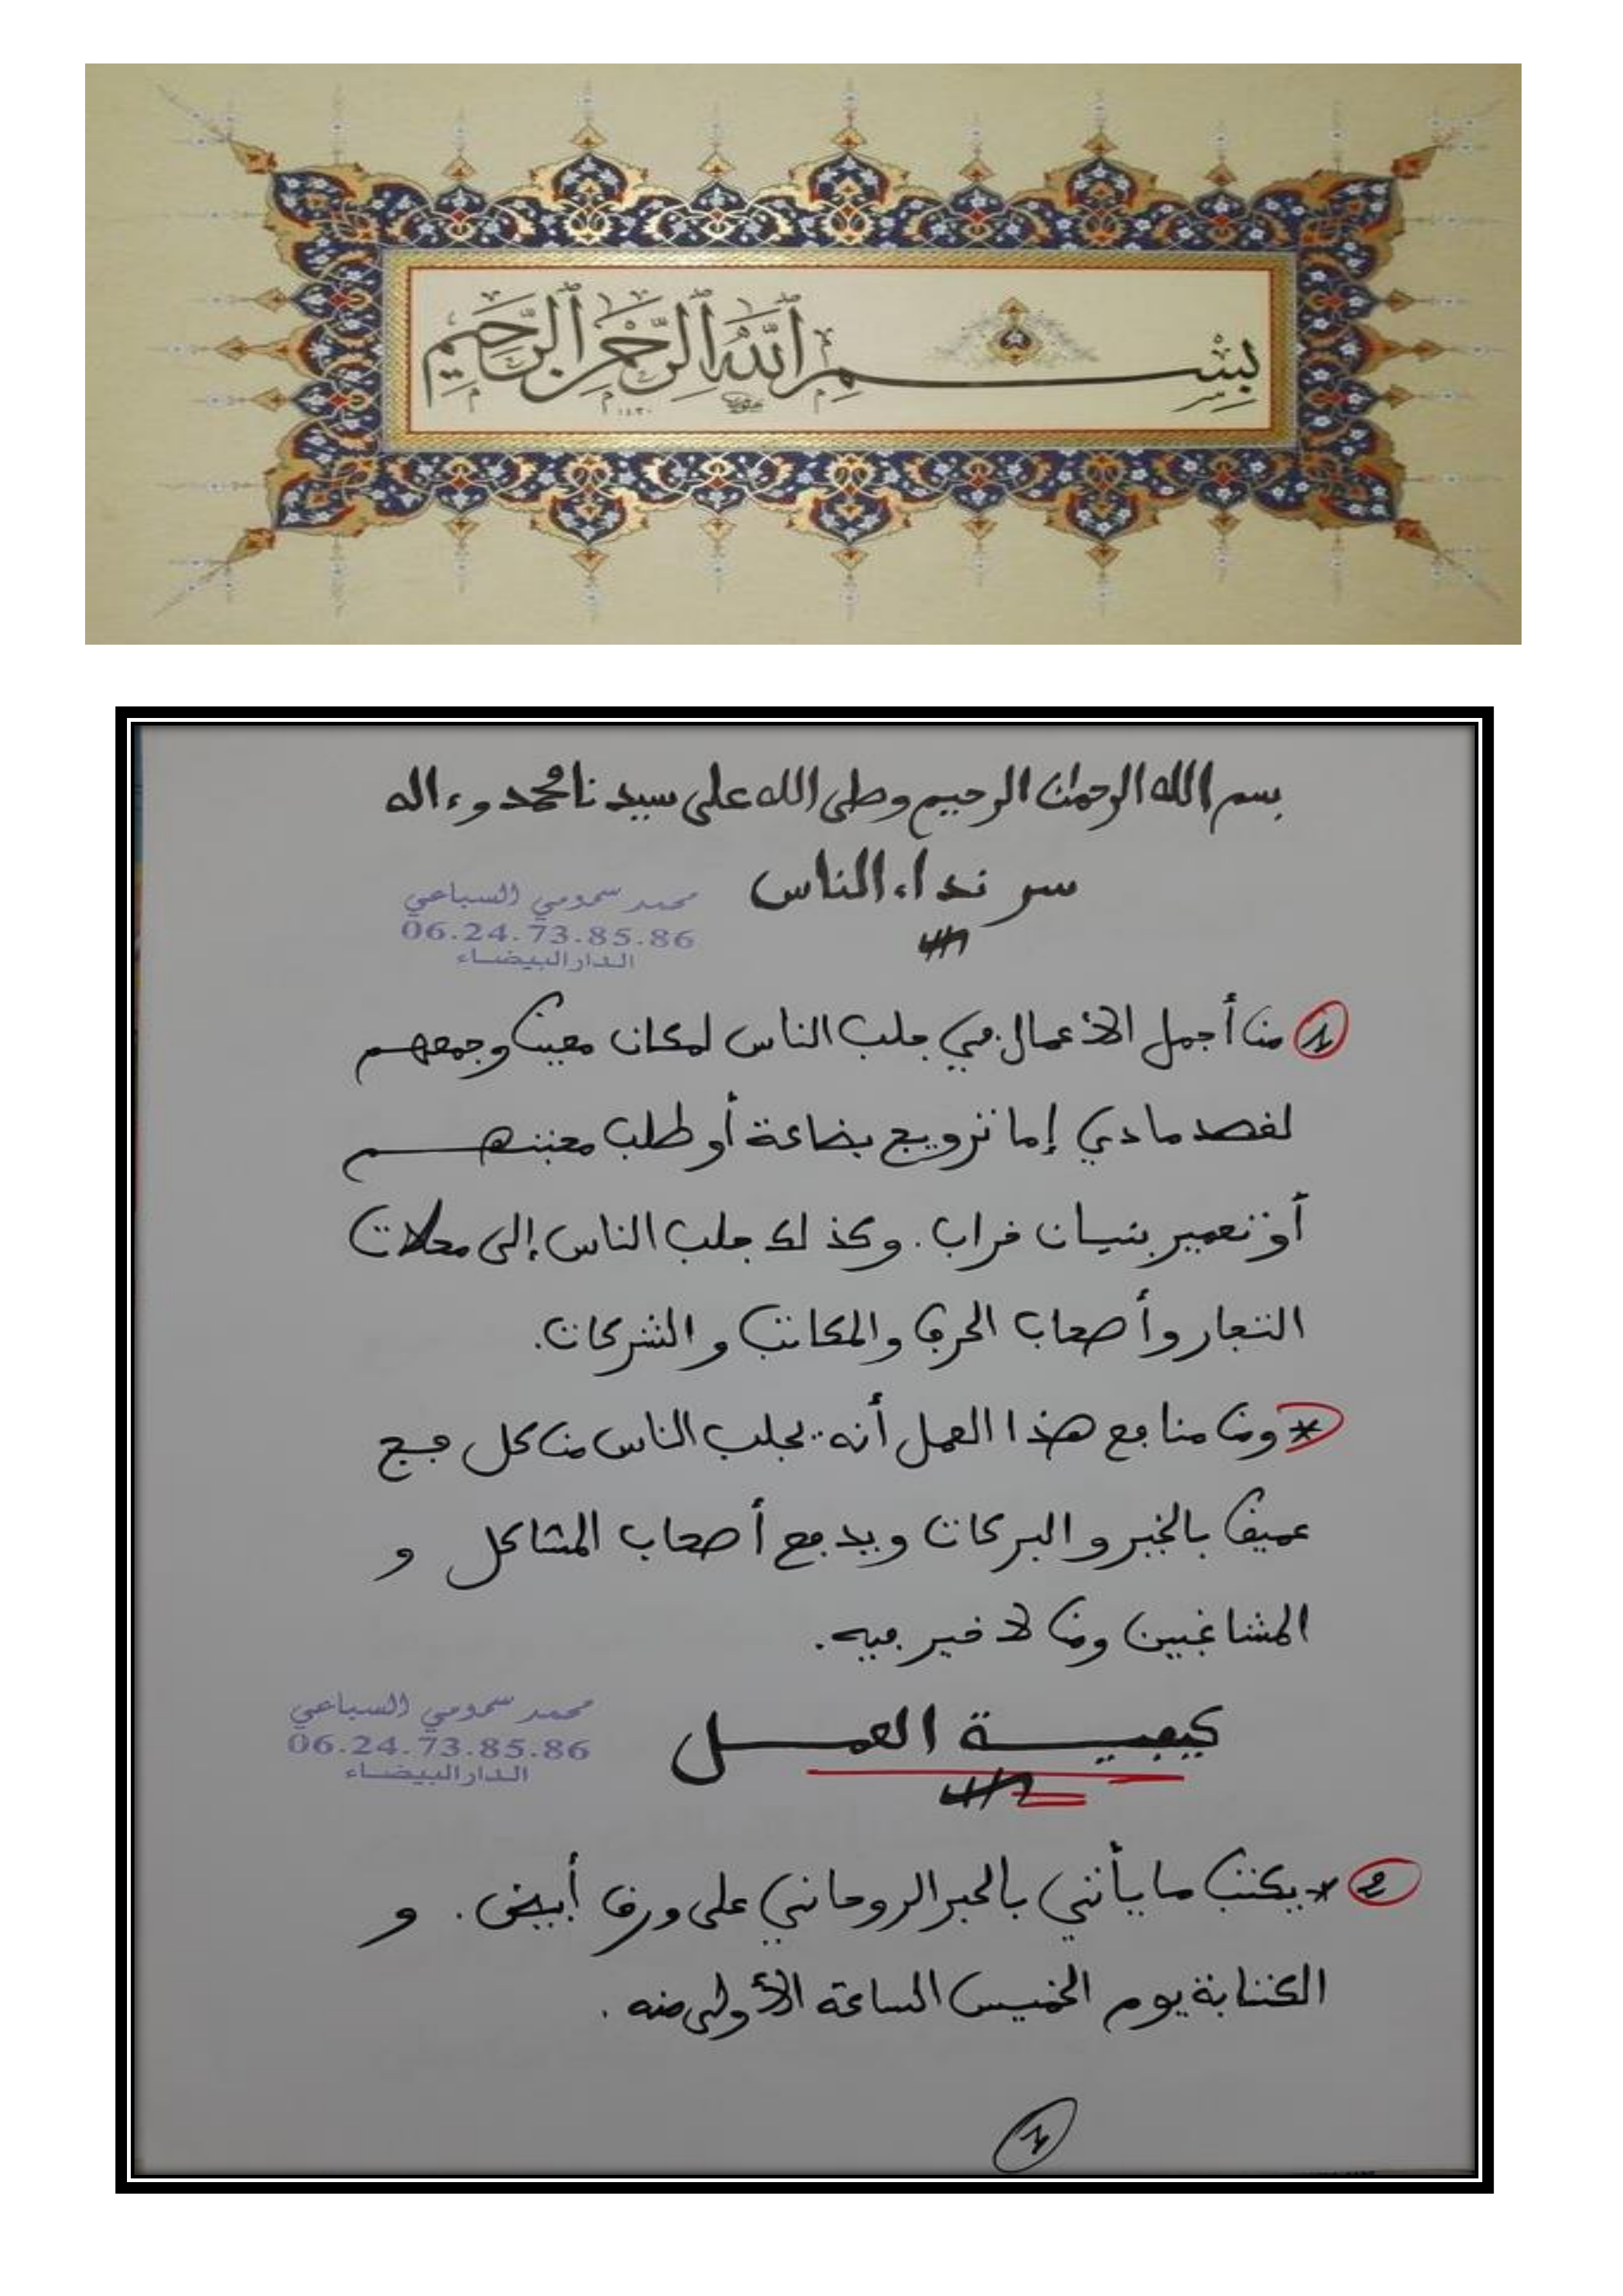 بِسْمِ ٱللَّهِ ٱلرَّحْمَٰنِ ٱلرَّحِيمِ
١٤٣٠
بسم الله الرحمان الرحيم وصلى الله على سيدنا محمد وءاله
سر نداء الناس
محمد سمومي السباعي
06.24.73.85.86
الدار البيضاء
1 من أجمل الأعمال في جلب الناس لمكان معين وجمعهم
لقصد مادي إما ترويج بضاعة أو طلب محبتهم
أو تعمير بنيان خراب. وكذلك جلب الناس إلى محلات
التجار وأصحاب الحرف والمكاتب والشركات.
* ومن منافع هذا العمل أنه يجلب الناس من كل فج
عميق بالخير والبركات ويدفع أصحاب المشاكل و
المشاغبين ومن لا خير فيه.
محمد سمومي السباعي
06.24.73.85.86
الدار البيضاء
كيفية العمل
2 * يكتب ما يأتي بالحبر الروحاني على ورق أبيض. و
الكتابة يوم الخميس الساعة الأولى منه.
1